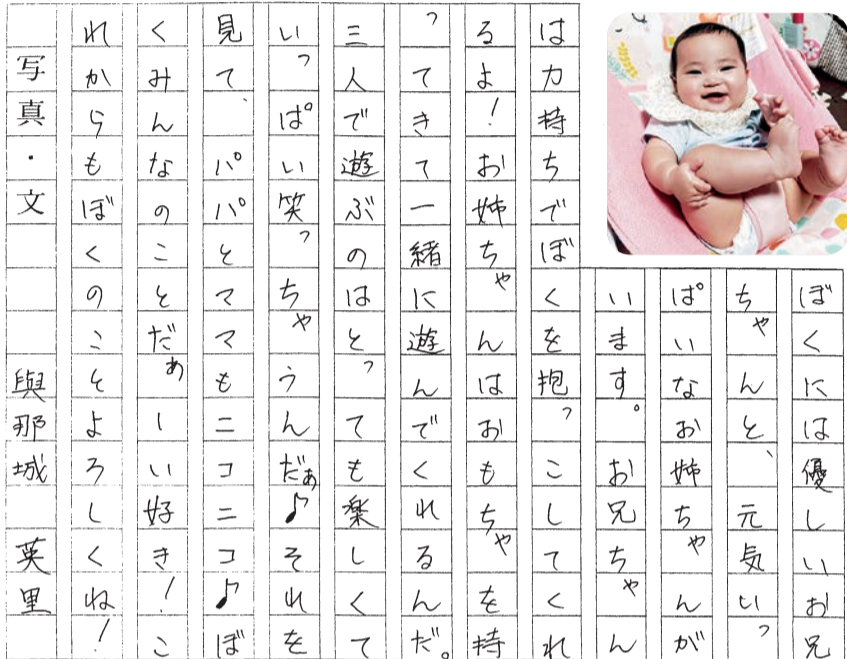 ぼくには優しいお兄
ちゃんと、元気いっ
ぱいなお姉ちゃんが
います。お兄ちゃん
は力持ちでぼくを抱っこしてくれ
るよ！お姉ちゃんはおもちゃを持
ってきて一緒に遊んでくれるんだ。
三人で遊ぶのはとっても楽しくて
いっぱい笑っちゃうんだぁ♪それを
見て、パパとママもニコニコ♪ぼ
くみんなのことだぁーい好き！こ
れからもぼくのことよろしくね！
写真・文　與那城　英里